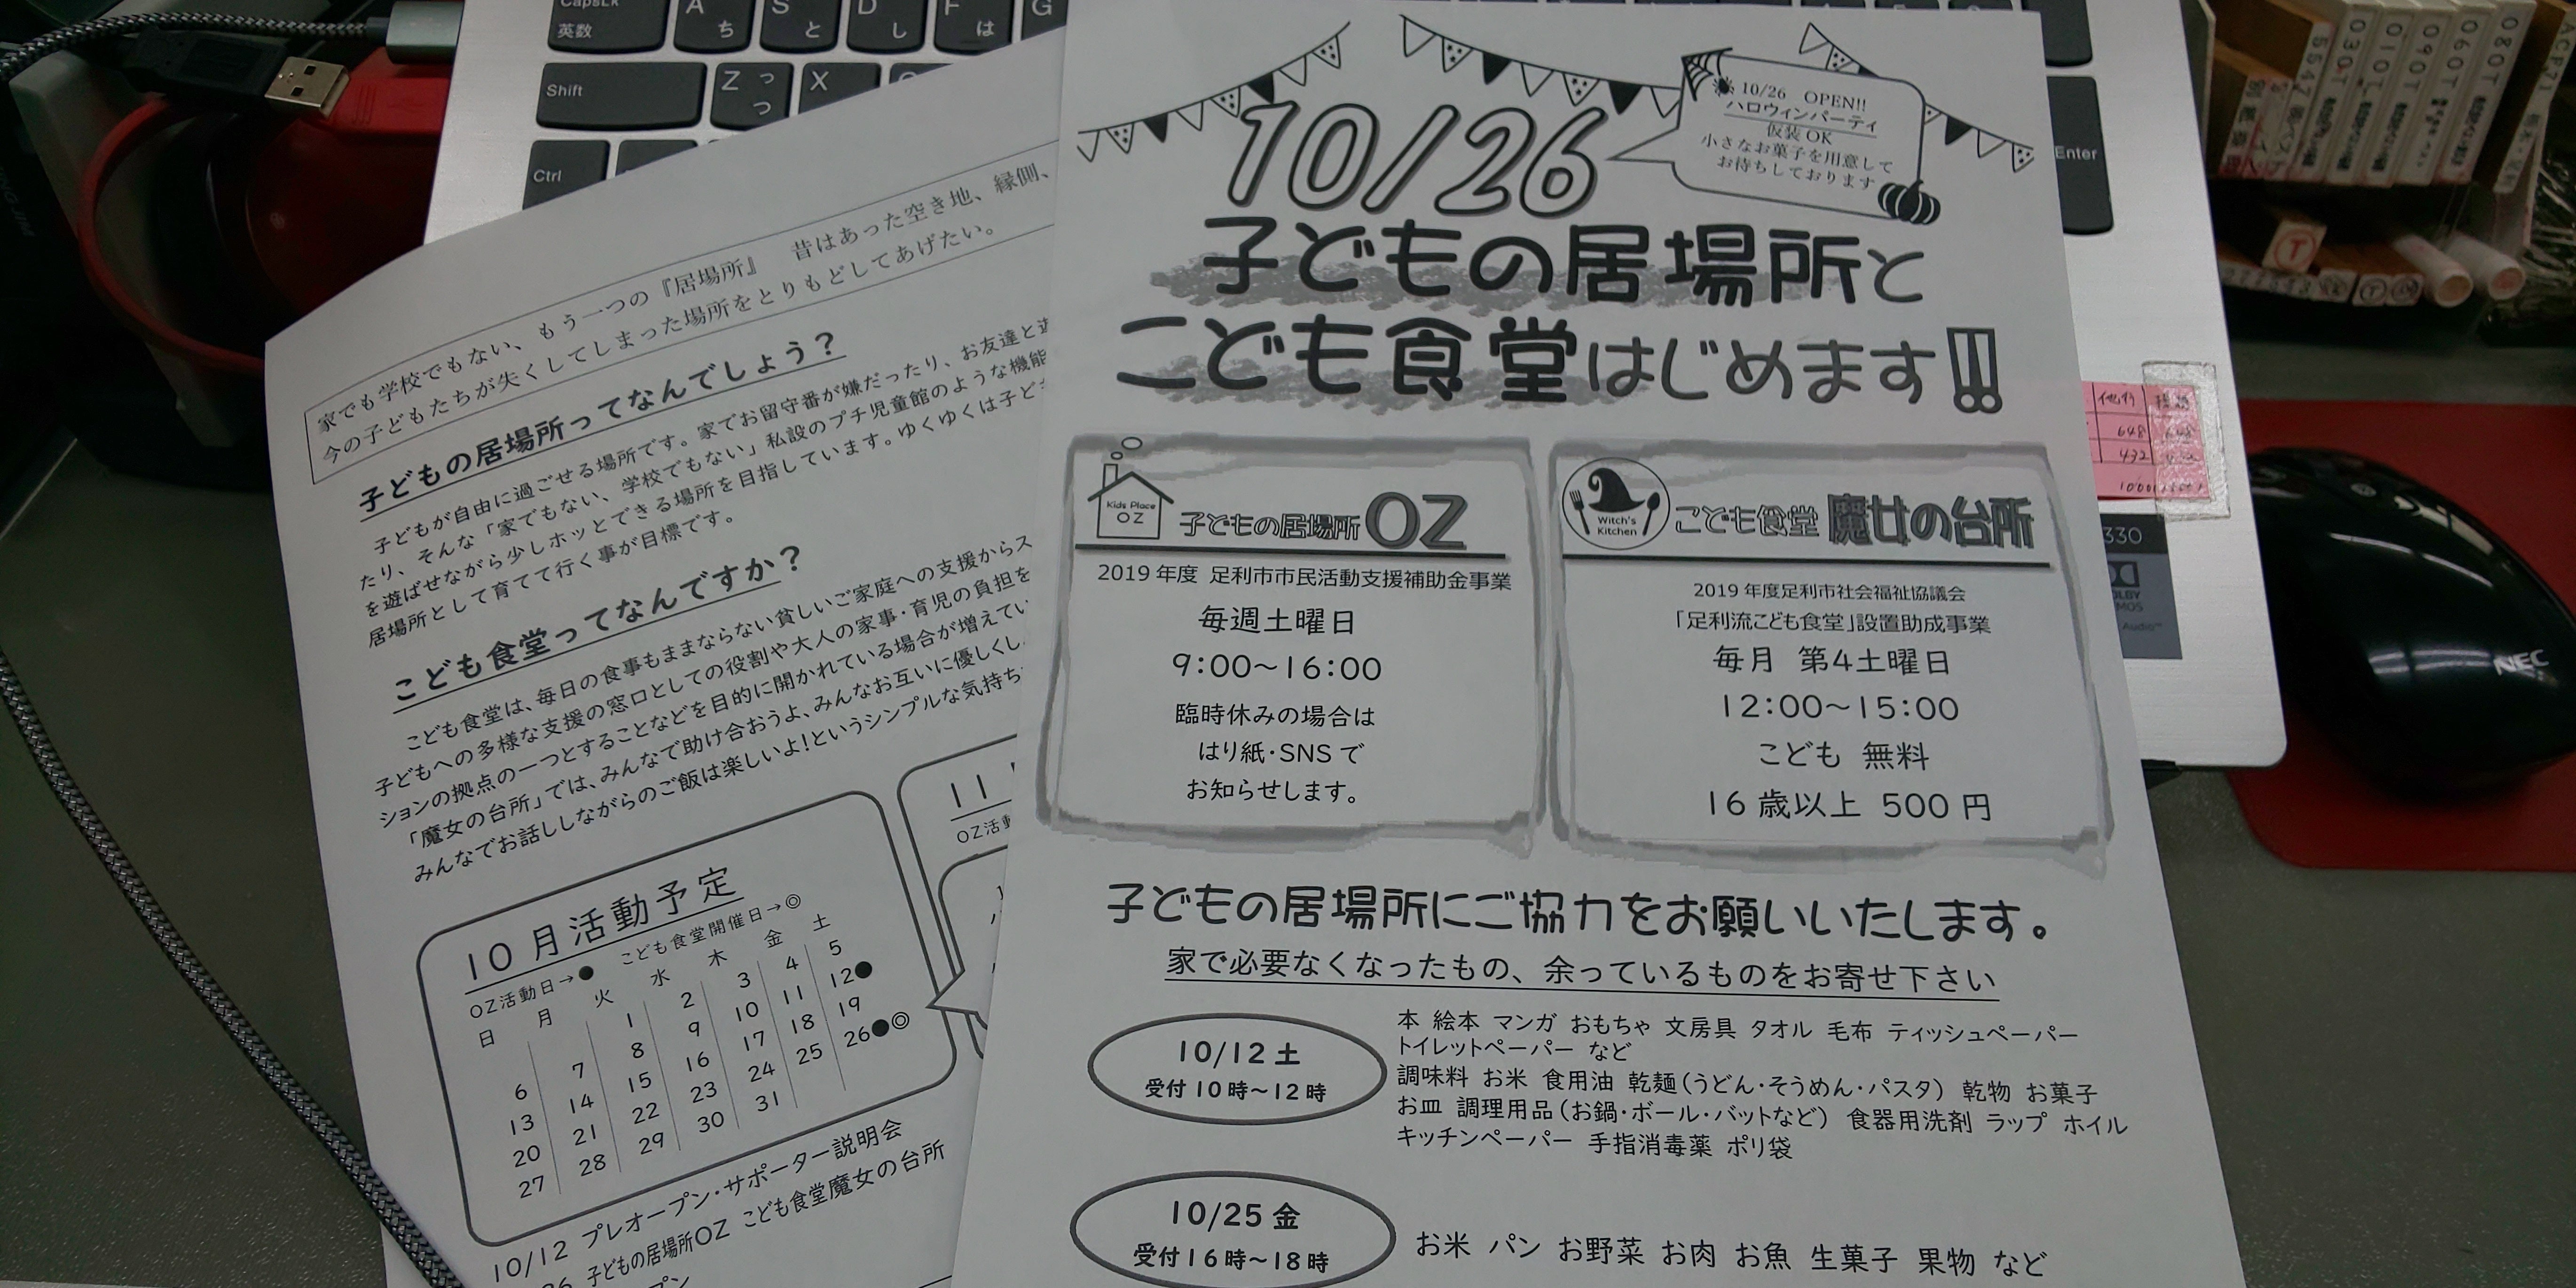 10/26
10/26 OPEN!!
ハロウィンパーティ
仮装OK
小さなお菓子を用意して
お待ちしております
子どもの居場所と
こども食堂はじめます!!
Kids Place
OZ
子どもの居場所OZ
2019年度 足利市市民活動支援補助金事業
毎週土曜日
9:00〜16:00
臨時休みの場合は
はり紙・SNSで
お知らせします。
Witch's
Kitchen
こども食堂 魔女の台所
2019年度足利市社会福祉協議会
「足利流こども食堂」設置助成事業
毎月 第4土曜日
12:00〜15:00
こども 無料
16歳以上 500円
子どもの居場所にご協力をお願いいたします。
家で必要なくなったもの、余っているものをお寄せ下さい
10/12土
受付10時〜12時
本 絵本 マンガ おもちゃ 文房具 タオル 毛布 ティッシュペーパー
トイレットペーパー など
調味料 お米 食用油 乾麺(うどん・そうめん・パスタ) 乾物 お菓子
お皿 調理用品(お鍋・ボール・バットなど) 食器用洗剤 ラップ ホイル
キッチンペーパー 手指消毒薬 ポリ袋
10/25金
受付16時〜18時
お米 パン お野菜 お肉 お魚 生菓子 果物 など
家でも学校でもない、もう一つの『居場所』 昔はあった空き地、縁側、
今の子どもたちが失くしてしまった場所をとりもどしてあげたい。
子どもの居場所ってなんでしょう?
子どもが自由に過ごせる場所です。家でお留守番が嫌だったり、お友達と
たり、そんな「家でもない、学校でもない」私設のプチ児童館のような機能
を遊ばせながら少しホッとできる場所を目指しています。ゆくゆくは子ど
居場所として育てて行く事が目標です。
こども食堂ってなんですか?
こども食堂は、毎日の食事もままならない貧しいご家庭への支援からス
子どもへの多様な支援の窓口としての役割や大人の家事・育児の負担を
ションの拠点の一つとすることなどを目的に開かれている場合が増えてい
「魔女の台所」では、みんなで助け合おうよ、みんなお互いに優しくし
みんなでお話ししながらのご飯は楽しいよ!というシンプルな気持ち
10月活動予定
OZ活動日→● こども食堂開催日→◎
日 月 火 水 木 金 土
1 2 3 4 5
6 7 8 9 10 11 12●
13 14 15 16 17 18 19
20 21 22 23 24 25 26●◎
27 28 29 30 31
11
OZ活動
10/12 プレオープン・サポーター説明会
子どもの居場所OZ こども食堂魔女の台所
CapsLk
英数
A ち
S と
D し
F は
G
Shift
Z っ つ
X
Ctrl
Enter
330
NEC
他行
648
432
080T
060T
090T
010T
030T